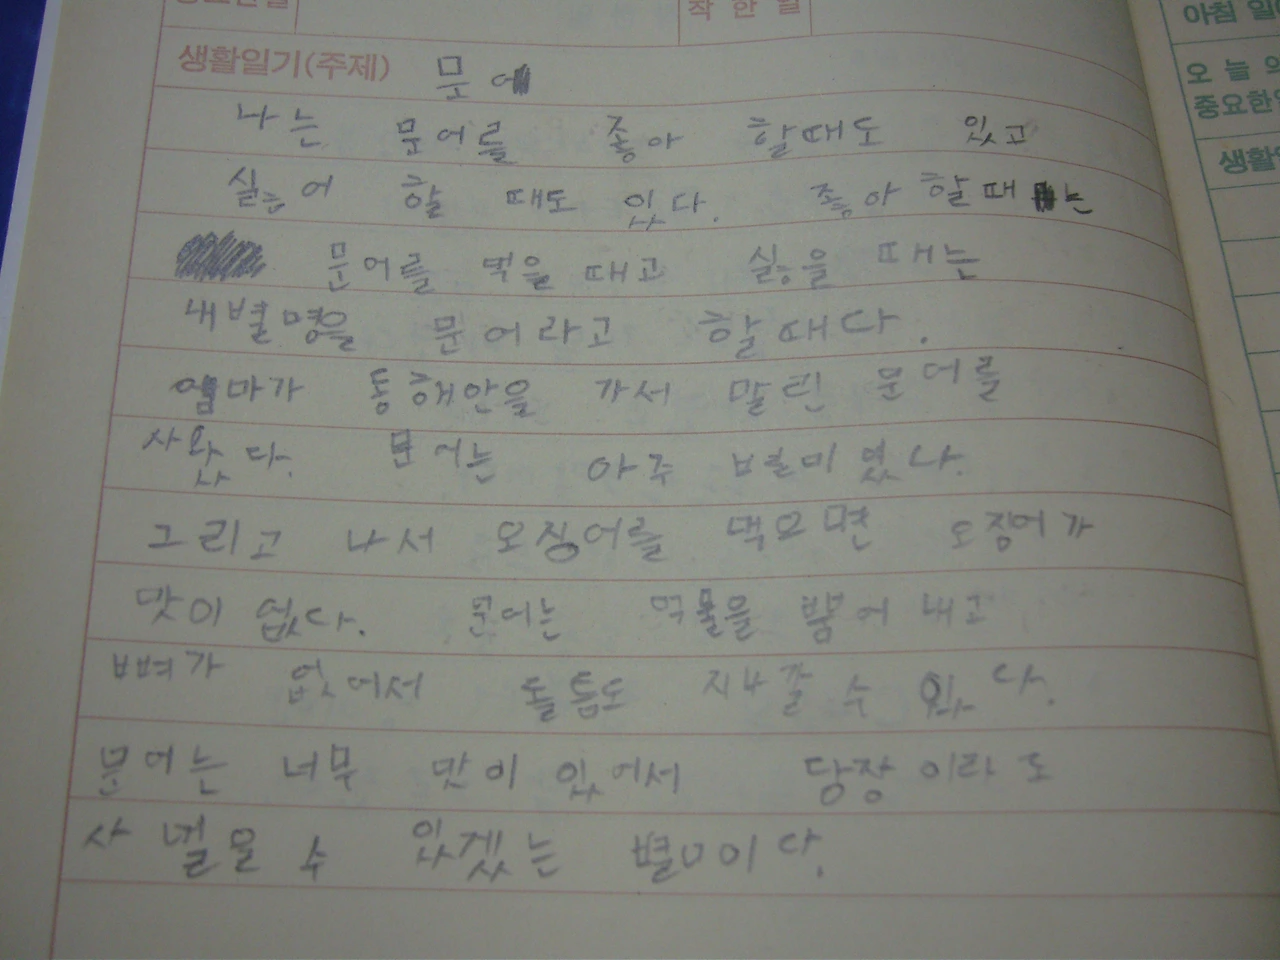 착 한 일
아침 일
생활일기(주제) 문어
오 늘 의
중요한
생활
나는 문어를 좋아 할때도 있고
싫어 할 때도 있다. 좋아 할때는
문어를 먹을 때고 싫을 때는
내별명을 문어라고 할때다.
엄마가 동해안을 가서 말린 문어를
사왔다. 문어는 아주 별미였다.
그리고 나서 오징어를 먹으면 오징어가
맛이 없다. 문어는 먹물을 뿜어 내고
뼈가 없어서 돌틈도 지나갈 수 있다.
문어는 너무 맛이 있어서 당장이라도
사 먹을 수 있겠는 별미이다.